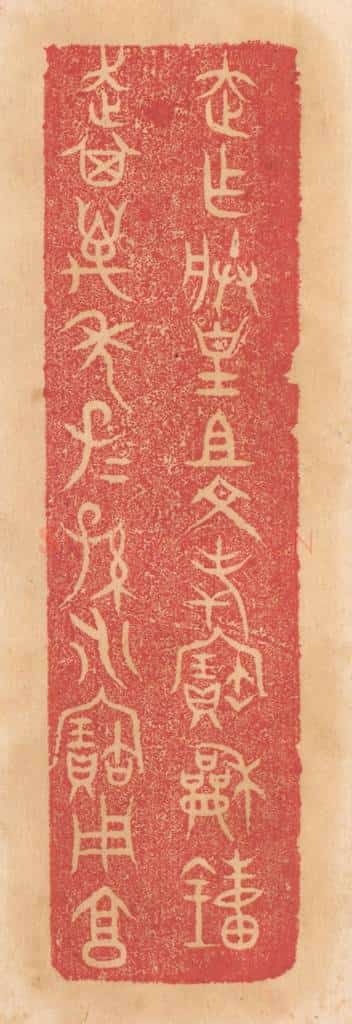 走乍朕皇且文考寶龢鐘
走其萬年子子孫孫永寶用亯